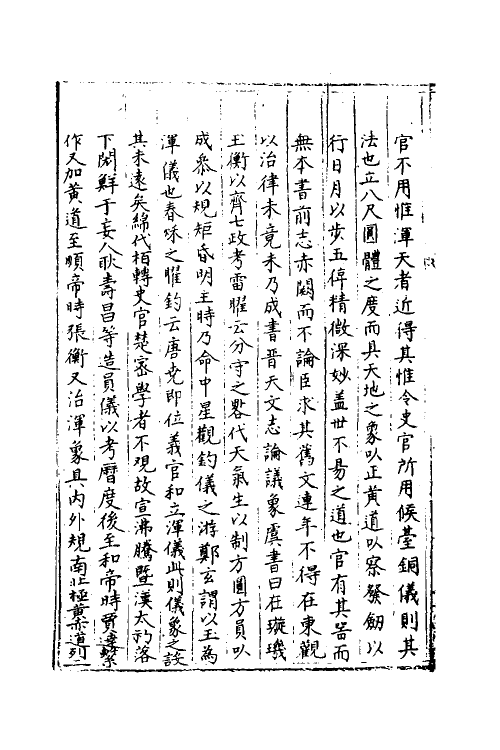 官不用惟渾天者近得其惟令史官所用候䑓銅儀則其
法也立八尺圓體之度而具天地之象以正黄道以察發劒以
行日月以步五𠋫精微深妙盖世不易之道也官有其噐而
無本書前志赤闕而不論臣求其舊文連年不得在東觀
以治律未竟未乃成書晋天文志論議象虞書曰在璇璣
玉衡以齊七政考雷曜云分守之畧代天氣生以制方圓方員以
成叅以規矩昏明主時乃命中星觀鈞儀之游鄭玄謂以玉為
渾儀也春秌之曜鈞云唐尭即位羲官和立渾儀此則儀象之設
其未遠矣綿代栢轉史官楚宻學者不覩故宣沸騰曁漢太初落
下閎鮮于妄人耿壽昌等造員儀以考曆度後至和帝時賈逵繫
作又加黄道至順帝時張衡又治渾象具内外規南北極黄道列